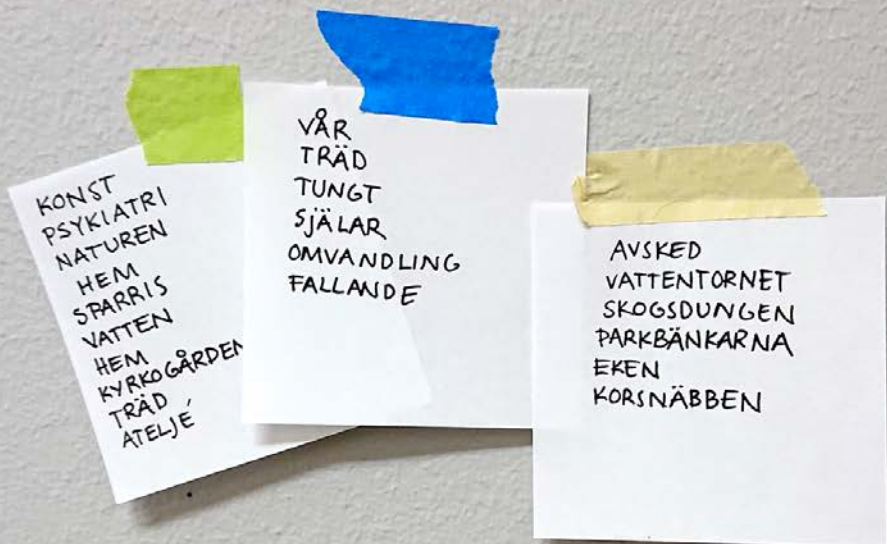 KONST
PSYKIATRI
NATUREN
HEM
SPARRIS
VATTEN
HEM
KYRKOGÅRDEN
TRÄD
ATELJÉ
VÅR
TRÄD
TUNGT
SJÄLAR
OMVANDLING
FALLANDE
AVSKED
VATTENTORNET
SKOGSDUNGEN
PARKBÄNKARNA
EKEN
KORSNÄBBEN